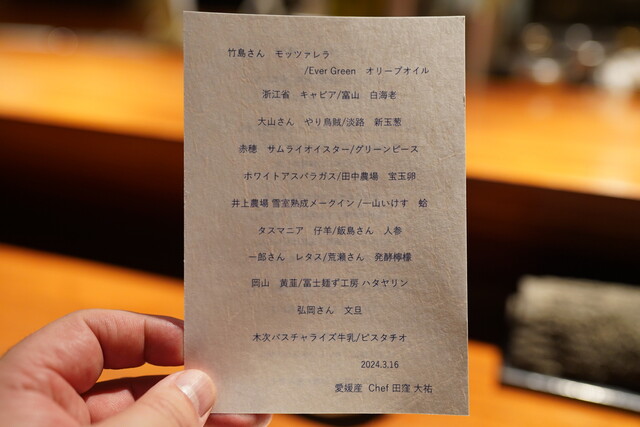 竹島さん　モッツァレラ
/Ever Green　オリーブオイル
浙江省　キャビア/富山　白海老
大山さん　やり烏賊/淡路　新玉葱
赤穂　サムライオイスター/グリーンピース
ホワイトアスパラガス/田中農場　宝玉卵
井上農場 雪室熟成メークイン /一山いけす　蛤
タスマニア　仔羊/飯島さん　人参
一郎さん　レタス/荒瀬さん　発酵檸檬
岡山　黄韮/冨士麺ず工房 ハタヤリン
弘岡さん　文旦
木次パスチャライズ牛乳/ピスタチオ
2024.3.16
愛媛産　Chef 田窪 大祐